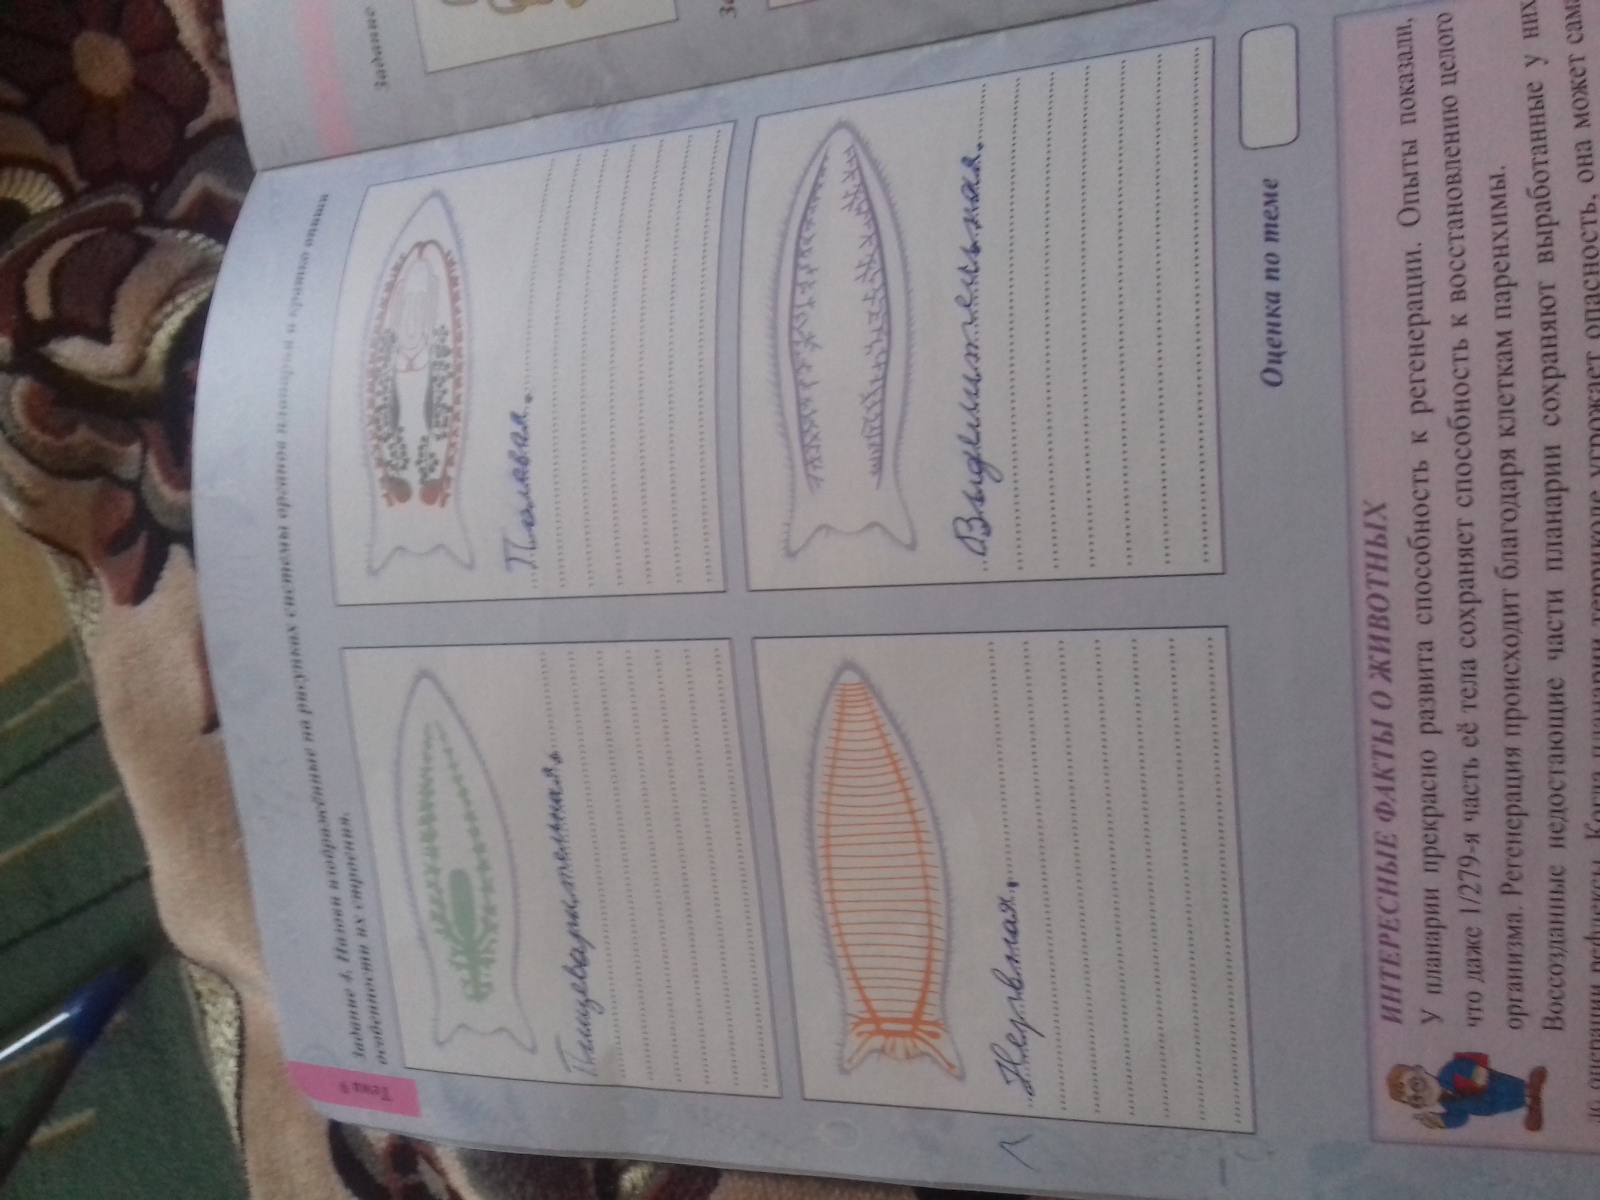 Тема 9
Задание 4. Назови изображённые на рисунках системы органов планарии и кратко опиши
особенности их строения.
Пищеварительная.
Половая.
Нервная.
Выделительная.
Оценка по теме
ИНТЕРЕСНЫЕ ФАКТЫ О ЖИВОТНЫХ
У планарии прекрасно развита способность к регенерации. Опыты показали,
что даже 1/279-я часть её тела сохраняет способность к восстановлению целого
организма. Регенерация происходит благодаря клеткам паренхимы.
Воссозданные недостающие части планарии сохраняют выработанные у них
до операции рефлексы. Когда планарии террикоде угрожает опасность, она может сама
Задание